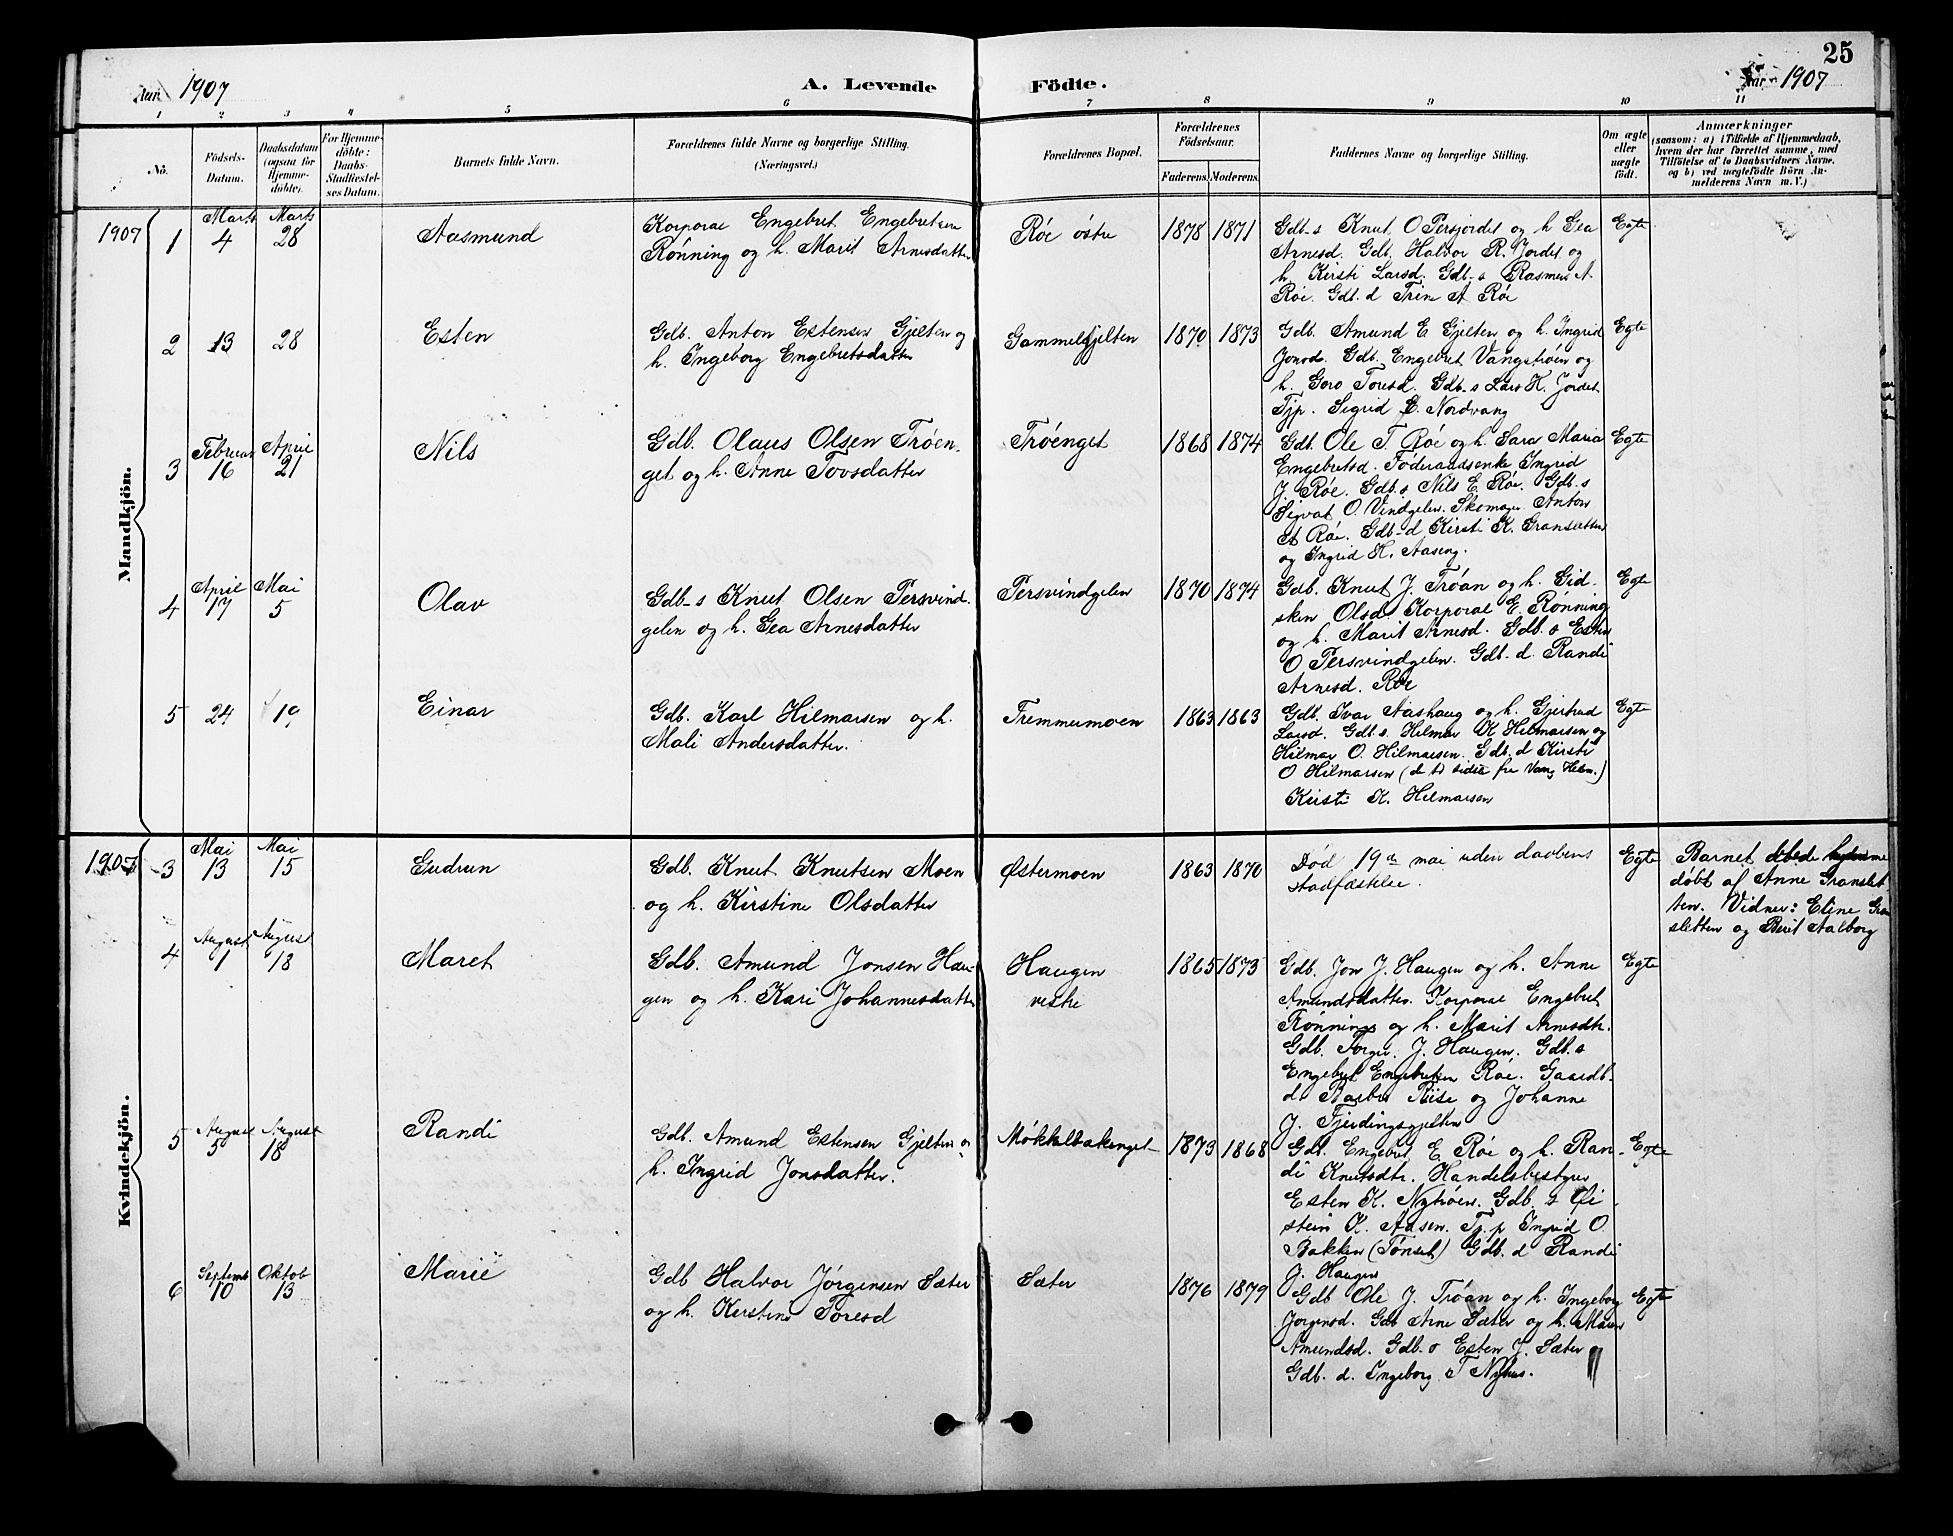 25
Aar 1907
A. Levende Födte.
Aar 1907
1 2 3 4 5 6 7 8 9 10 11
No.
Födsels-
Datum.
Daabsdatum
(ogsaa for
Hjemme-
döbte).
For Hjemme-
döbte:
Daabs-
Stadfæstel-
ses Datum.
Barnets fulde Navn.
Forældrenes fulde Navne og borgerlige Stilling.
(Næringsvei.)
Forældrenes Bopæl.
Forældrenes
Födselsaar.
Faderens. Moderens.
Faddernes Navne og borgerlige Stilling.
Om ægte
eller
uægte
födt.
Anmærkninger
(saasom: a) i Tilfælde af Hjemmedaab,
hvem der har forrettet samme, med
Tilföielse af to Daabsvidners Navne,
og b) ved uægtefödte Börn An-
melderens Navn m. V.)
Mandkjön.
1907 1 Marts 4 Marts 28 Aasmund
Korporal Engebret Engebretsen
Rønning og h. Marit Arnesdatter
Røe østre 1878 1871
Gdb-s Knut O Persjordet og h Gea
Arnesd. Gdb. Halvor R. Jordet og
h. Kirsti Larsd. Gdb-s Rasmus A
Røe. Gdb. d Trine A Røe
Egte
2 13 28 Esten
Gdb. Anton Estensen Gjelten og
h. Ingeborg Engebretsdatter
Gammelgjelten 1870 1873
Gdb. Amund E Gjelten og h. Ingrid
Jonsd. Gdb. Engebret Vangstrøen og
h. Goro Toresd. Gdb-s Lars K. Jordet
Tjp. Sigrid E. Nordvang
Egte
3 Februar 16 April 21 Nils
Gdb. Olaus Olsen Trøen-
get og h. Anne Tovsdatter
Trøenget 1868 1874
Gdb. Ole T Røe og h. Sara Maria
Engebretsd. Föderaadsenke Ingrid
J. Røe. Gdb. s Nils E. Røe. Gdb. s
Sigvat O. Vindgelen. Skomager Anton
A Røe. Gdb-d Kirsti K. Gransletten
og Ingrid H. Aaseng.
Egte
4 April 17 Mai 5 Olav
Gdb-s Knut Olsen Persvind-
gelen og h. Gea Arnesdatter
Persvindgelen 1870 1874
Gdb. Knut J. Trøan og h. Gid-
sken Olsd. Korporal E. Rønning
og h. Marit Arnesd. Gdb. s Esten
O Persvindgelen. Gdb-d. Randi
Arnesd. Røe
Egte
5 24 19 Einar
Gdb. Karl Hilmarsen og h.
Mali Andersdatter.
Tremmumoen 1863 1863
Gdb. Ivar Aashaug og h. Gjertrud
Larsd. Gdb. s. Hilmar K Hilmarsen og
Hilmar O. Hilmarsen. Gdb. d Kirsti
O Hilmarsen (de to sidste fra Vang Hedm.)
Kirsti K. Hilmarsen
Egte
Kvindekjön.
1907 3 Mai 13 Mai 15 Gudrun
Gdb. Knut Knutsen Moen
og h. Kirstine Olsdatter
Østermoen 1863 1870
Død 19de mai uden daabens
stadfæstelse.
Egte
Barnet hjemme
døbt af Anne Granslet
ten. Vidner: Eline Gran
sletten og Berit Aalborg
4 August 1 August 18 Maret
Gdb. Amund Jonsen Hau-
gen og h. Kari Johannesdatter
Haugen
vestre
1865 1873
Gdb. Jon J. Haugen og h. Anne
Amundsdatter. Korporal Engebret
Rønning og h. Marit Arnesdtr.
Gdb. Torger J. Haugen. Gdb. s
Engebret Engebretsen Røe. Gaardb-
d. Barbro Riise og Johanne
J. Fjerdingsgjelten
Egte
5 August 5 August 18 Randi
Gdb. Amund Estensen Gjelten og
h. Ingrid Jonsdatter.
Møkkelbakenget 1873 1868
Gdb. Engebret E. Røe og h. Ran-
di Knutsdtr. Handelsbestyrer
Esten K. Nytrøen. Gdb. s Øi
stein K. Aasen. Tj. p Ingrid O
Bakken (Tønset) Gdb. d Randi
J. Haugen
Egte
6 Septemb 10 Oktob 13 Marie
Gdb Halvor Jørgensen Sæter
og h. Kerstine Toresd
Sæter 1876 1879
Gdb Ole J. Trøan og h. Ingeborg
Jørgensd. Gdb Arne Sæter og h. Maren
Amundsd. Gdb-s Esten J. Sæter og
Gdb. d. Ingeborg T Nyhus.
Egte